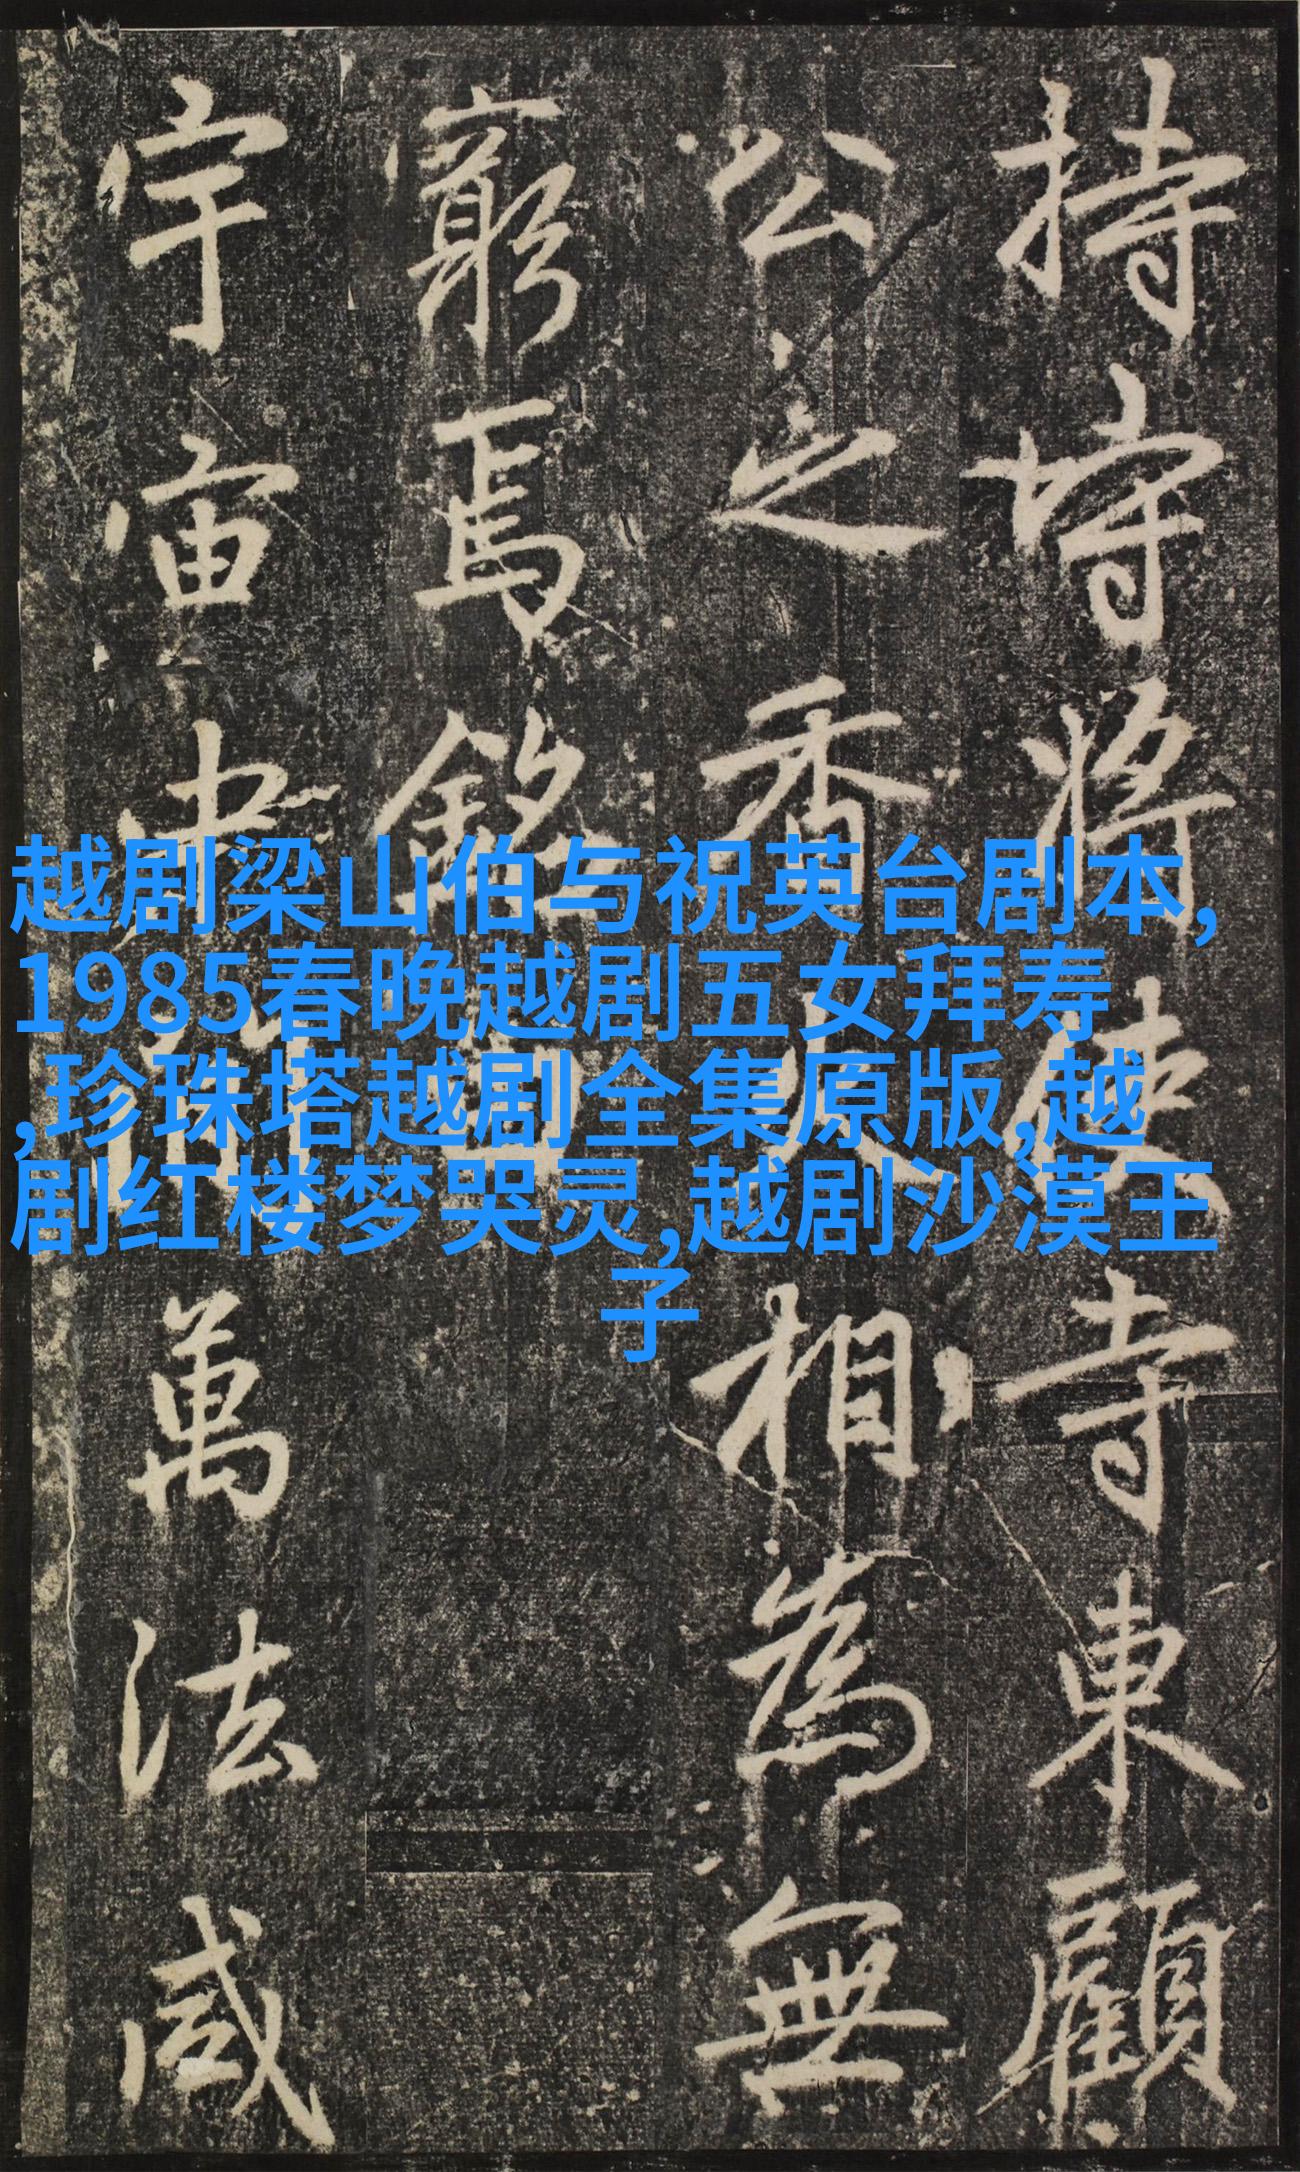 持將寺東顧
公之香火相為無
窮焉銘
宇宙中萬法咸
越剧梁山伯与祝英台剧本,
1985春晚越剧五女拜寿
,珍珠塔越剧全集原版,越
剧红楼梦哭灵,越剧沙漠王
子